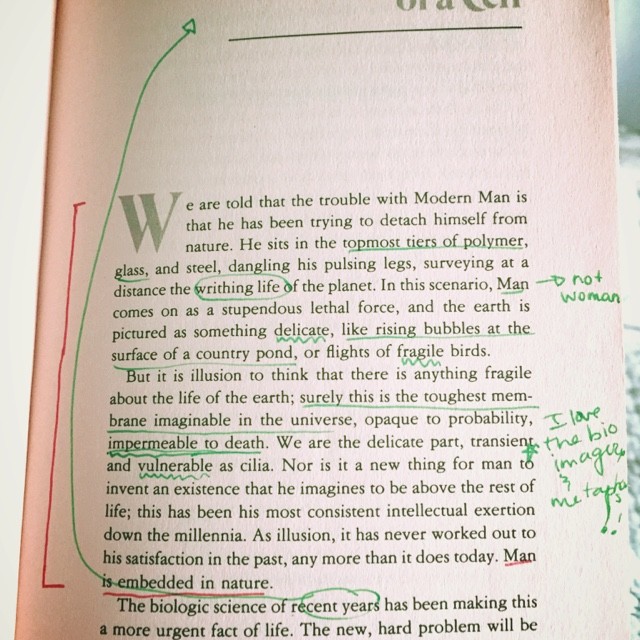 of a Cell
We are told that the trouble with Modern Man is
that he has been trying to detach himself from
nature. He sits in the topmost tiers of polymer,
glass, and steel, dangling his pulsing legs, surveying at a
distance the writhing life of the planet. In this scenario, Man
not
woman
comes on as a stupendous lethal force, and the earth is
pictured as something delicate, like rising bubbles at the
surface of a country pond, or flights of fragile birds.
But it is illusion to think that there is anything fragile
about the life of the earth; surely this is the toughest mem-
brane imaginable in the universe, opaque to probability,
impermeable to death. We are the delicate part, transient
and vulnerable as cilia. Nor is it a new thing for man to
I love
the bio
imagery
&
invent an existence that he imagines to be above the rest of
life; this has been his most consistent intellectual exertion
down the millennia. As illusion, it has never worked out to
his satisfaction in the past, any more than it does today. Man
is embedded in nature.
The biologic science of recent years has been making this
a more urgent fact of life. The new, hard problem will be